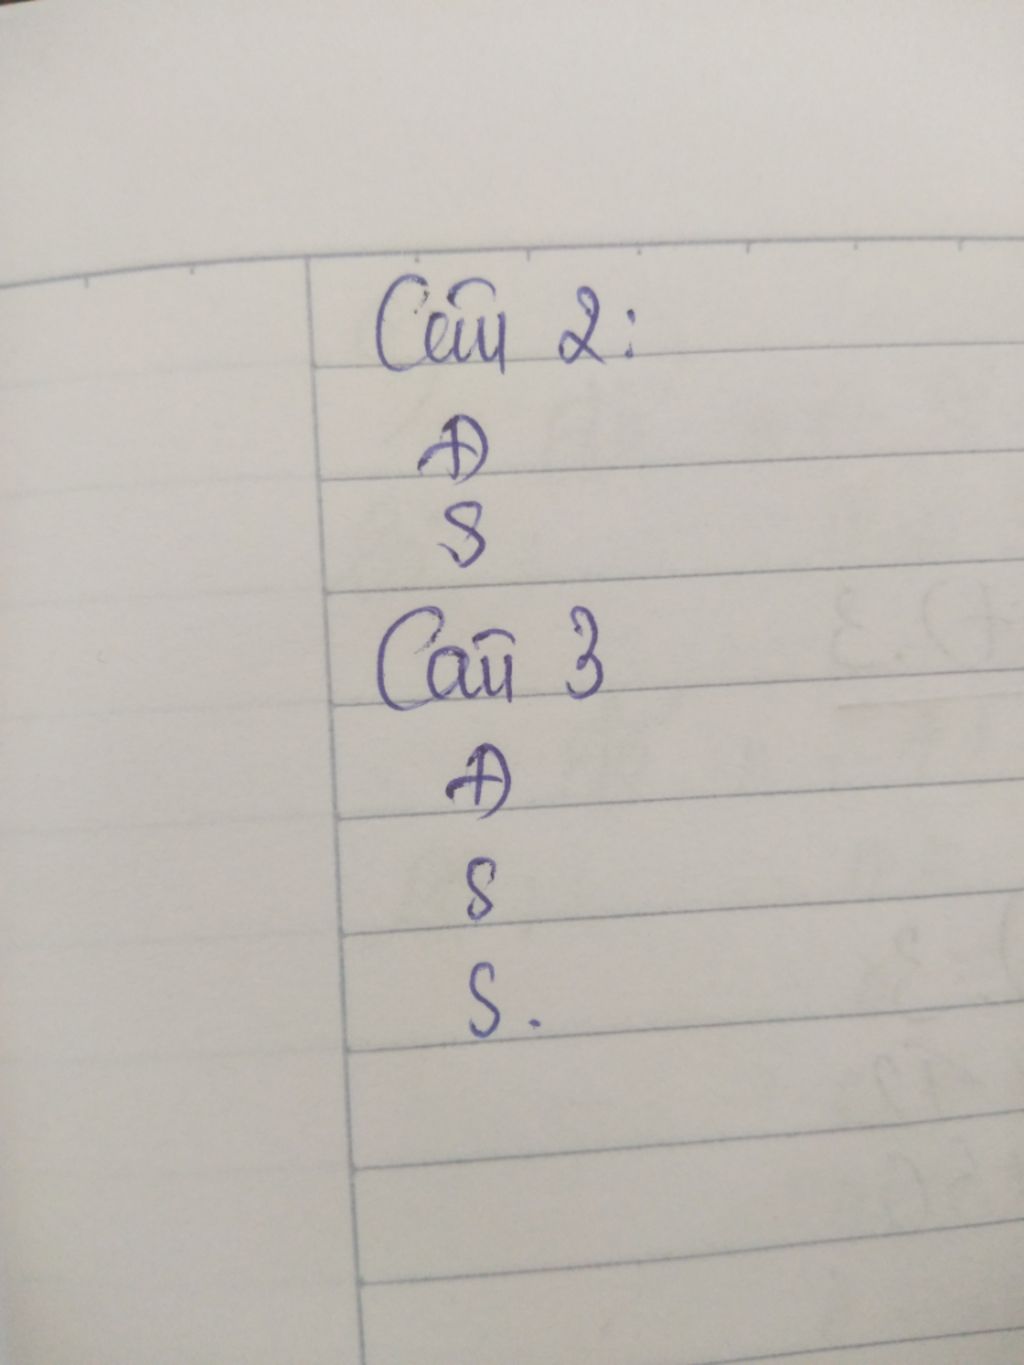 Câu 2:
Đ
S
Câu 3
Đ
S
S.